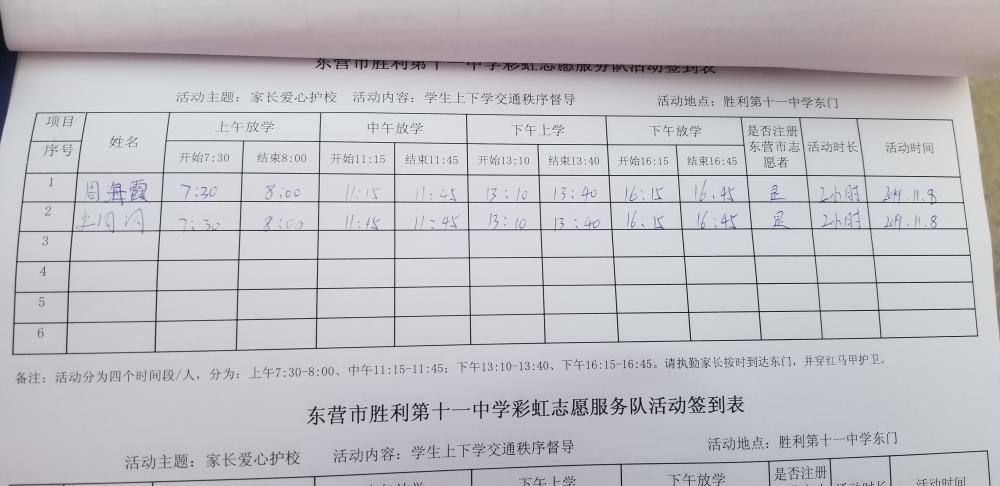 东营市胜利第十一中学彩虹志愿服务队活动签到表
活动主题：家长爱心护校 活动内容：学生上下学交通秩序督导 活动地点：胜利第十一中学东门
项目 序号 姓名 上午放学 中午放学 下午上学 下午放学 是否注册东营市志愿者 活动时长 活动时间
开始7:30 结束8:00 开始11:15 结束11:45 开始13:10 结束13:40 开始16:15 结束16:45
1 周海霞 7:30 8:00 11:15 11:45 13:10 13:40 16:15 16:45 是 2小时 2019.11.8
2 7:30 8:00 11:15 11:45 13:10 13:40 16:15 16:45 是 2小时 2019.11.8
3
4
5
6
备注：活动分为四个时间段/人，分为：上午7:30-8:00、中午11:15-11:45；下午13:10-13:40、下午16:15-16:45。请执勤家长按时到达东门，并穿红马甲护卫。
东营市胜利第十一中学彩虹志愿服务队活动签到表
活动主题：家长爱心护校 活动内容：学生上下学交通秩序督导 活动地点：胜利第十一中学东门
下午上学 下午放学 是否注册 活动时长 活动时间